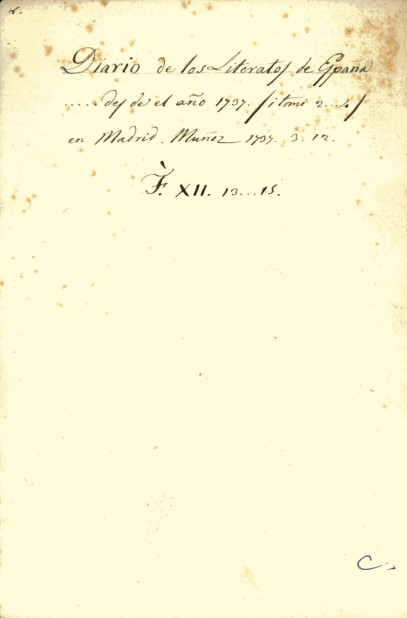 Diario de los Literatos de España
..... desde el año 1737. /: tomi 2...4/
en Madrid. Muñoz 1737. 3. 12.
F. XII. 13...15.
C.